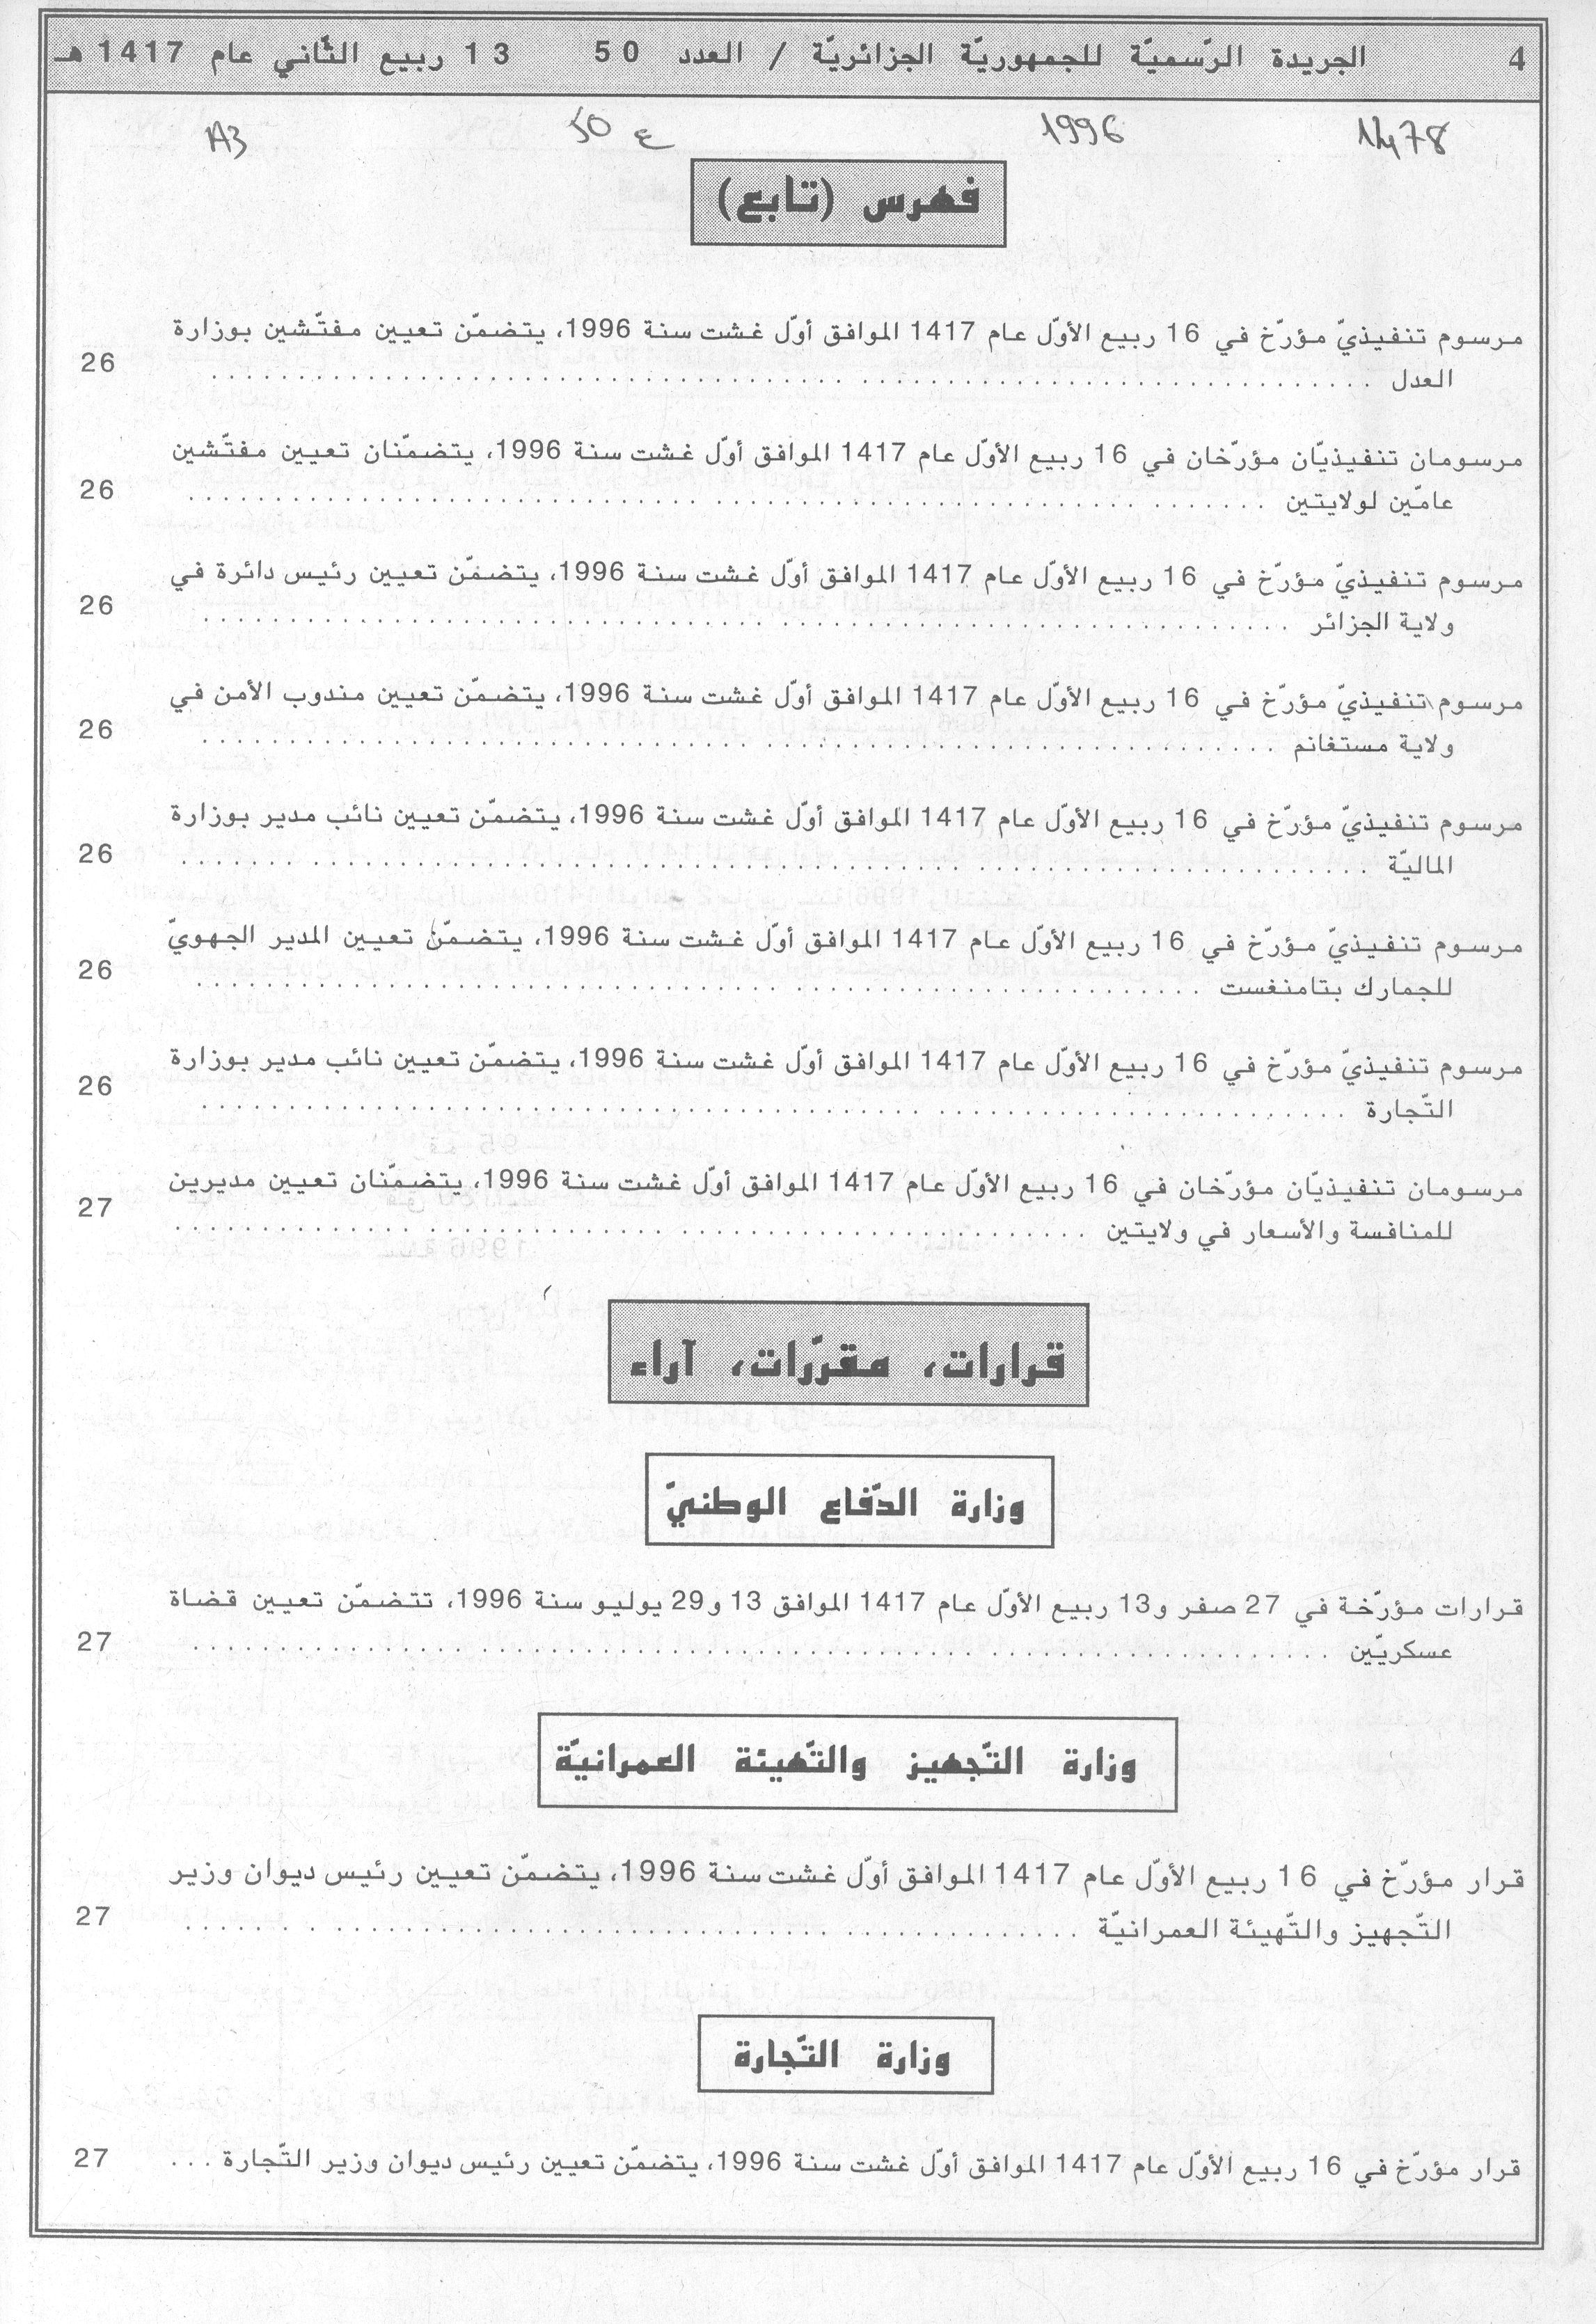 4 الجريدة الرّسميّة للجمهوريّة الجزائريّة / العدد 50 13 ربيع الثّاني عام 1417 هـ
1478 1996 ع 50 A3
فهرس (تابع)
مرسوم تنفيذيّ مؤرّخ في 16 ربيع الأوّل عام 1417 الموافق أوّل غشت سنة 1996، يتضمّن تعيين مفتّشين بوزارة
العدل . . . . . . . . . . . . . . . . . . . . 26
مرسومان تنفيذيّان مؤرّخان في 16 ربيع الأوّل عام 1417 الموافق أوّل غشت سنة 1996، يتضمّنان تعيين مفتّشين
عامّين لولايتين . . . . . . . . . . . . . . . . . . . . 26
مرسوم تنفيذيّ مؤرّخ في 16 ربيع الأوّل عام 1417 الموافق أوّل غشت سنة 1996، يتضمّن تعيين رئيس دائرة في
ولاية الجزائر . . . . . . . . . . . . . . . . . . . . 26
مرسوم تنفيذيّ مؤرّخ في 16 ربيع الأوّل عام 1417 الموافق أوّل غشت سنة 1996، يتضمّن تعيين مندوب الأمن في
ولاية مستغانم . . . . . . . . . . . . . . . . . . . . 26
مرسوم تنفيذيّ مؤرّخ في 16 ربيع الأوّل عام 1417 الموافق أوّل غشت سنة 1996، يتضمّن تعيين نائب مدير بوزارة
الماليّة . . . . . . . . . . . . . . . . . . . . 26
مرسوم تنفيذيّ مؤرّخ في 16 ربيع الأوّل عام 1417 الموافق أوّل غشت سنة 1996، يتضمّن تعيين المدير الجهويّ
للجمارك بتامنغست . . . . . . . . . . . . . . . . . . . . 26
مرسوم تنفيذيّ مؤرّخ في 16 ربيع الأوّل عام 1417 الموافق أوّل غشت سنة 1996، يتضمّن تعيين نائب مدير بوزارة
التّجارة . . . . . . . . . . . . . . . . . . . . 26
مرسومان تنفيذيّان مؤرّخان في 16 ربيع الأوّل عام 1417 الموافق أوّل غشت سنة 1996، يتضمّنان تعيين مديرين
للمنافسة والأسعار في ولايتين . . . . . . . . . . . . . . . . . . . . 27
قرارات، مقرّرات، آراء
وزارة الدّفاع الوطنيّ
قرارات مؤرّخة في 27 صفر و13 ربيع الأوّل عام 1417 الموافق 13 و29 يوليو سنة 1996، تتضمّن تعيين قضاة
عسكريّين . . . . . . . . . . . . . . . . . . . . 27
وزارة التّجهيز والتّهيئة العمرانيّة
قرار مؤرّخ في 16 ربيع الأوّل عام 1417 الموافق أوّل غشت سنة 1996، يتضمّن تعيين رئيس ديوان وزير
التّجهيز والتّهيئة العمرانيّة . . . . . . . . . . . . . . . . . . . . 27
وزارة التّجارة
قرار مؤرّخ في 16 ربيع الأوّل عام 1417 الموافق أوّل غشت سنة 1996، يتضمّن تعيين رئيس ديوان وزير التّجارة . . . 27